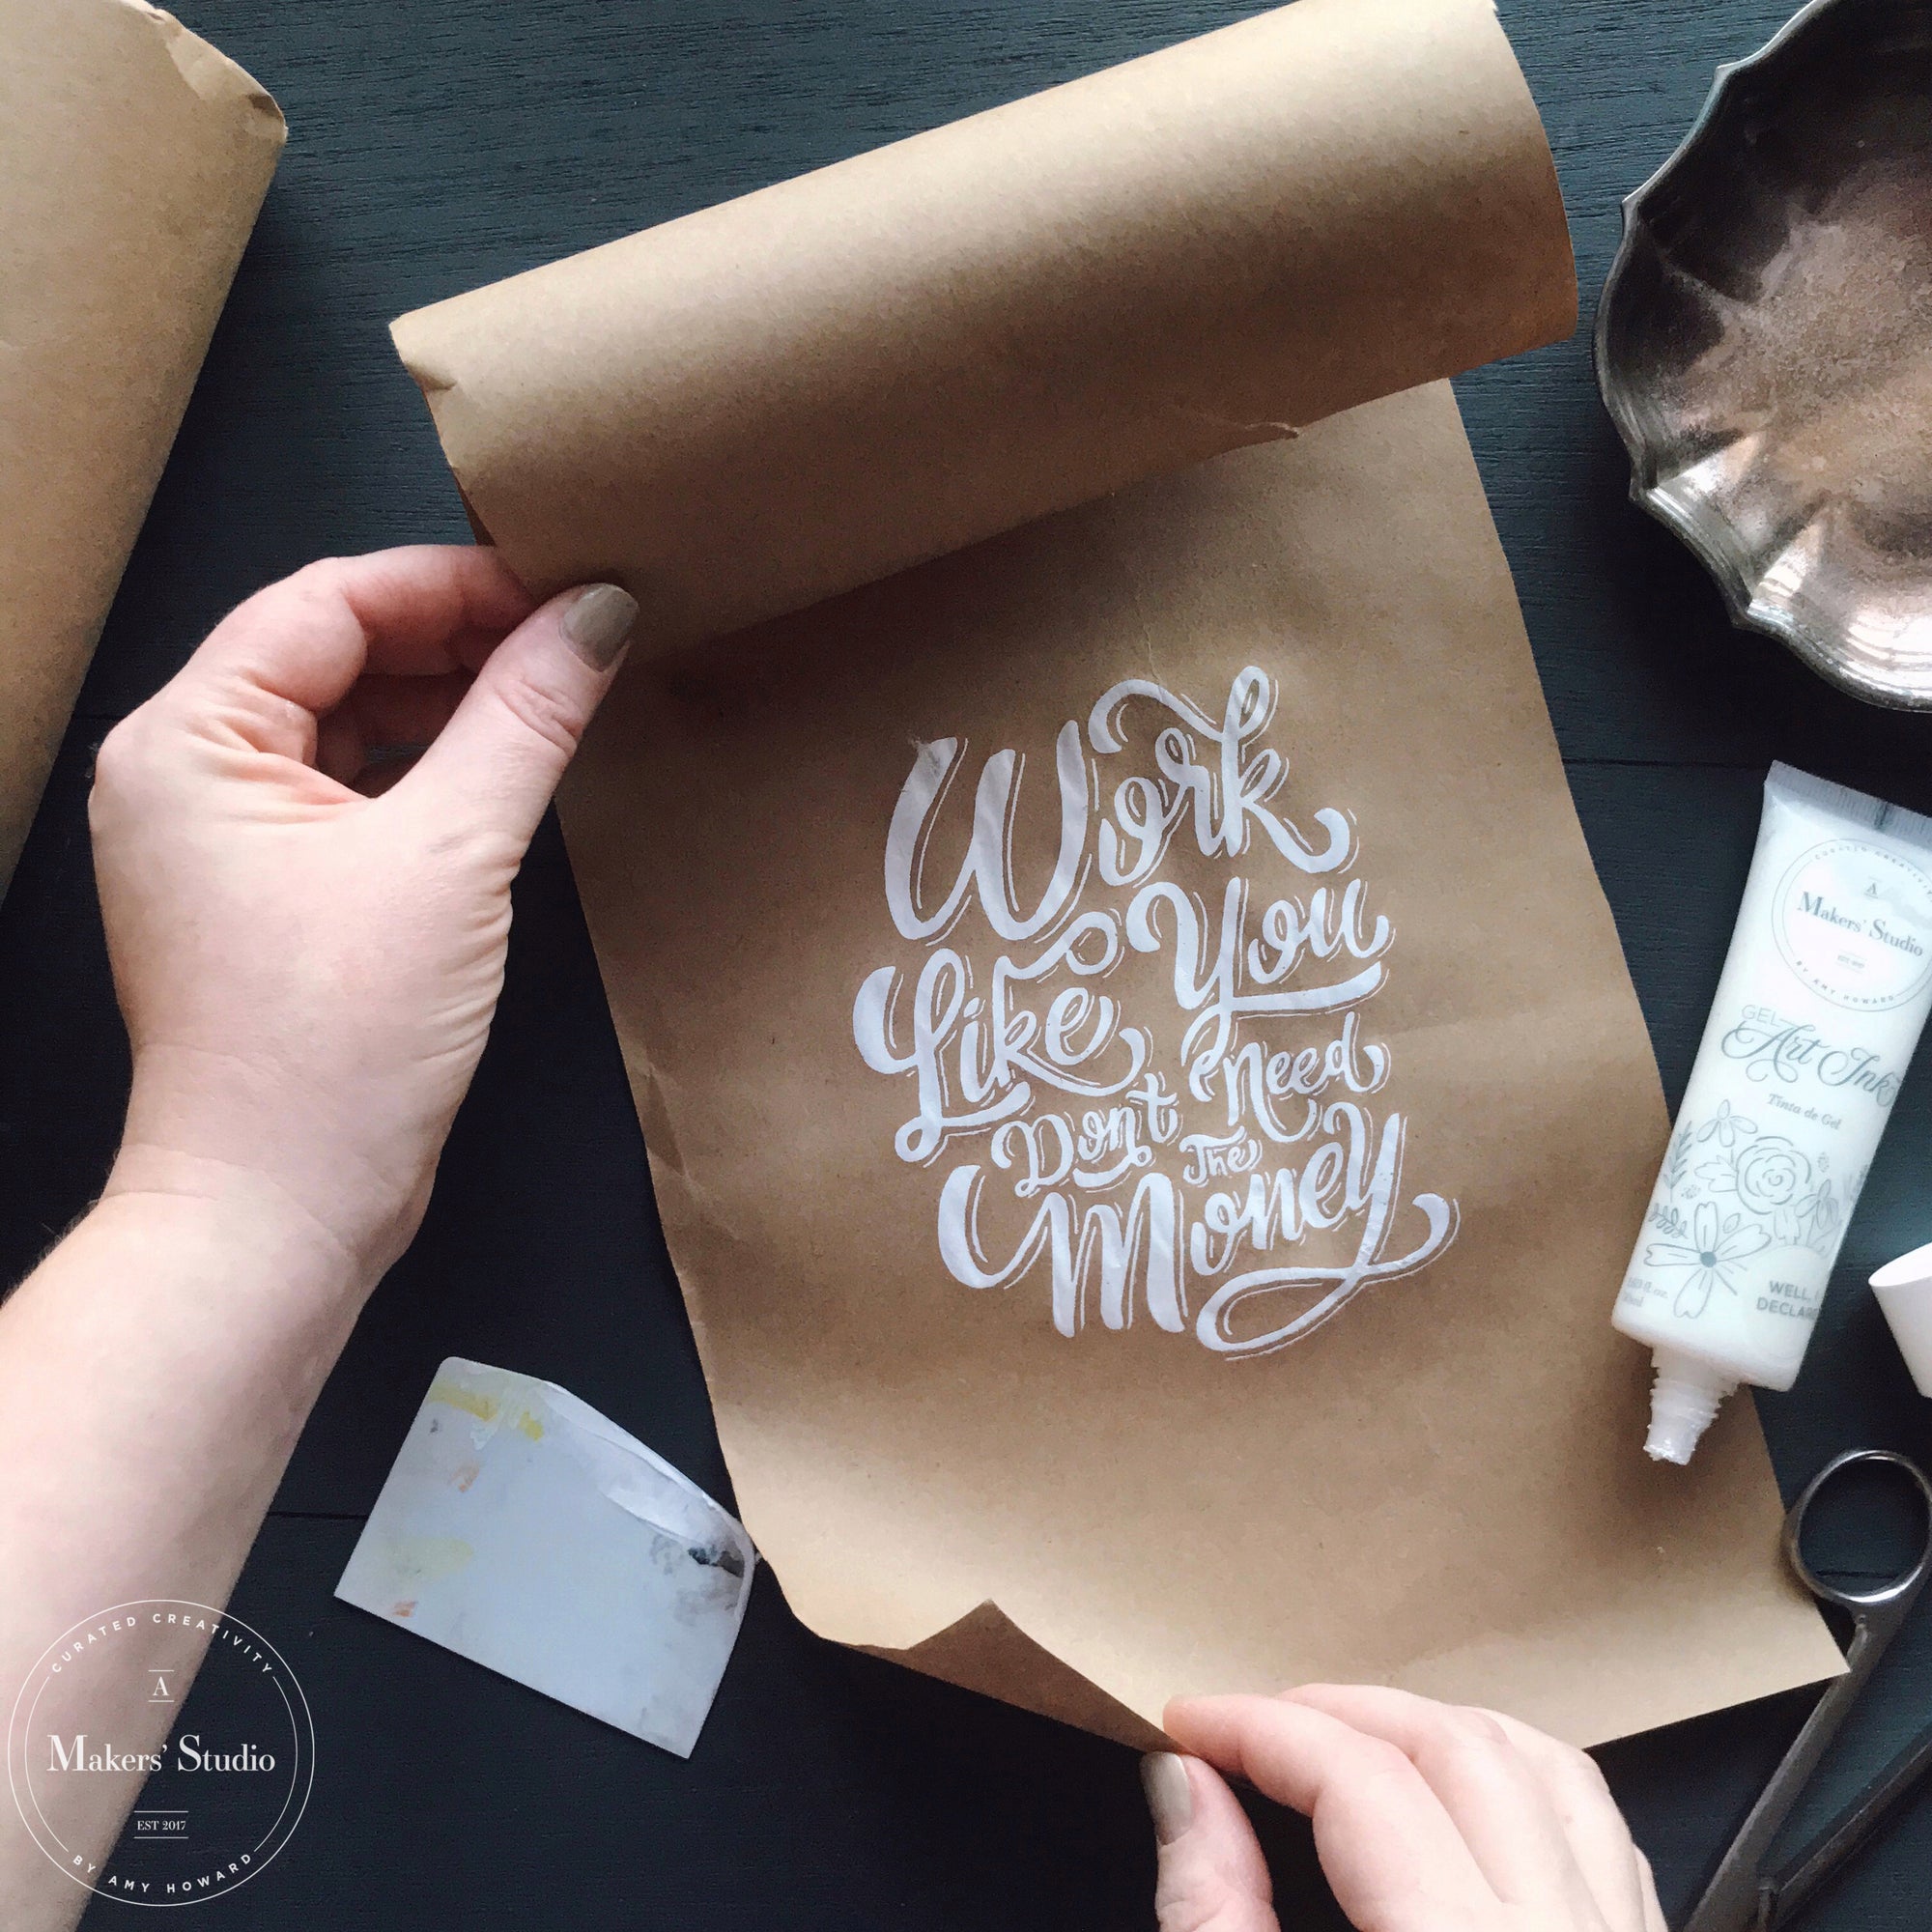 Work
Like You
Dont Need
The
Money
A
Makers' Studio
EST 2017
BY AMY HOWARD
GEL
Art Ink
Tinta de Gel
WELL, I
DECLARE
CURATED CREATIVITY
A
Makers' Studio
EST 2017
BY AMY HOWARD